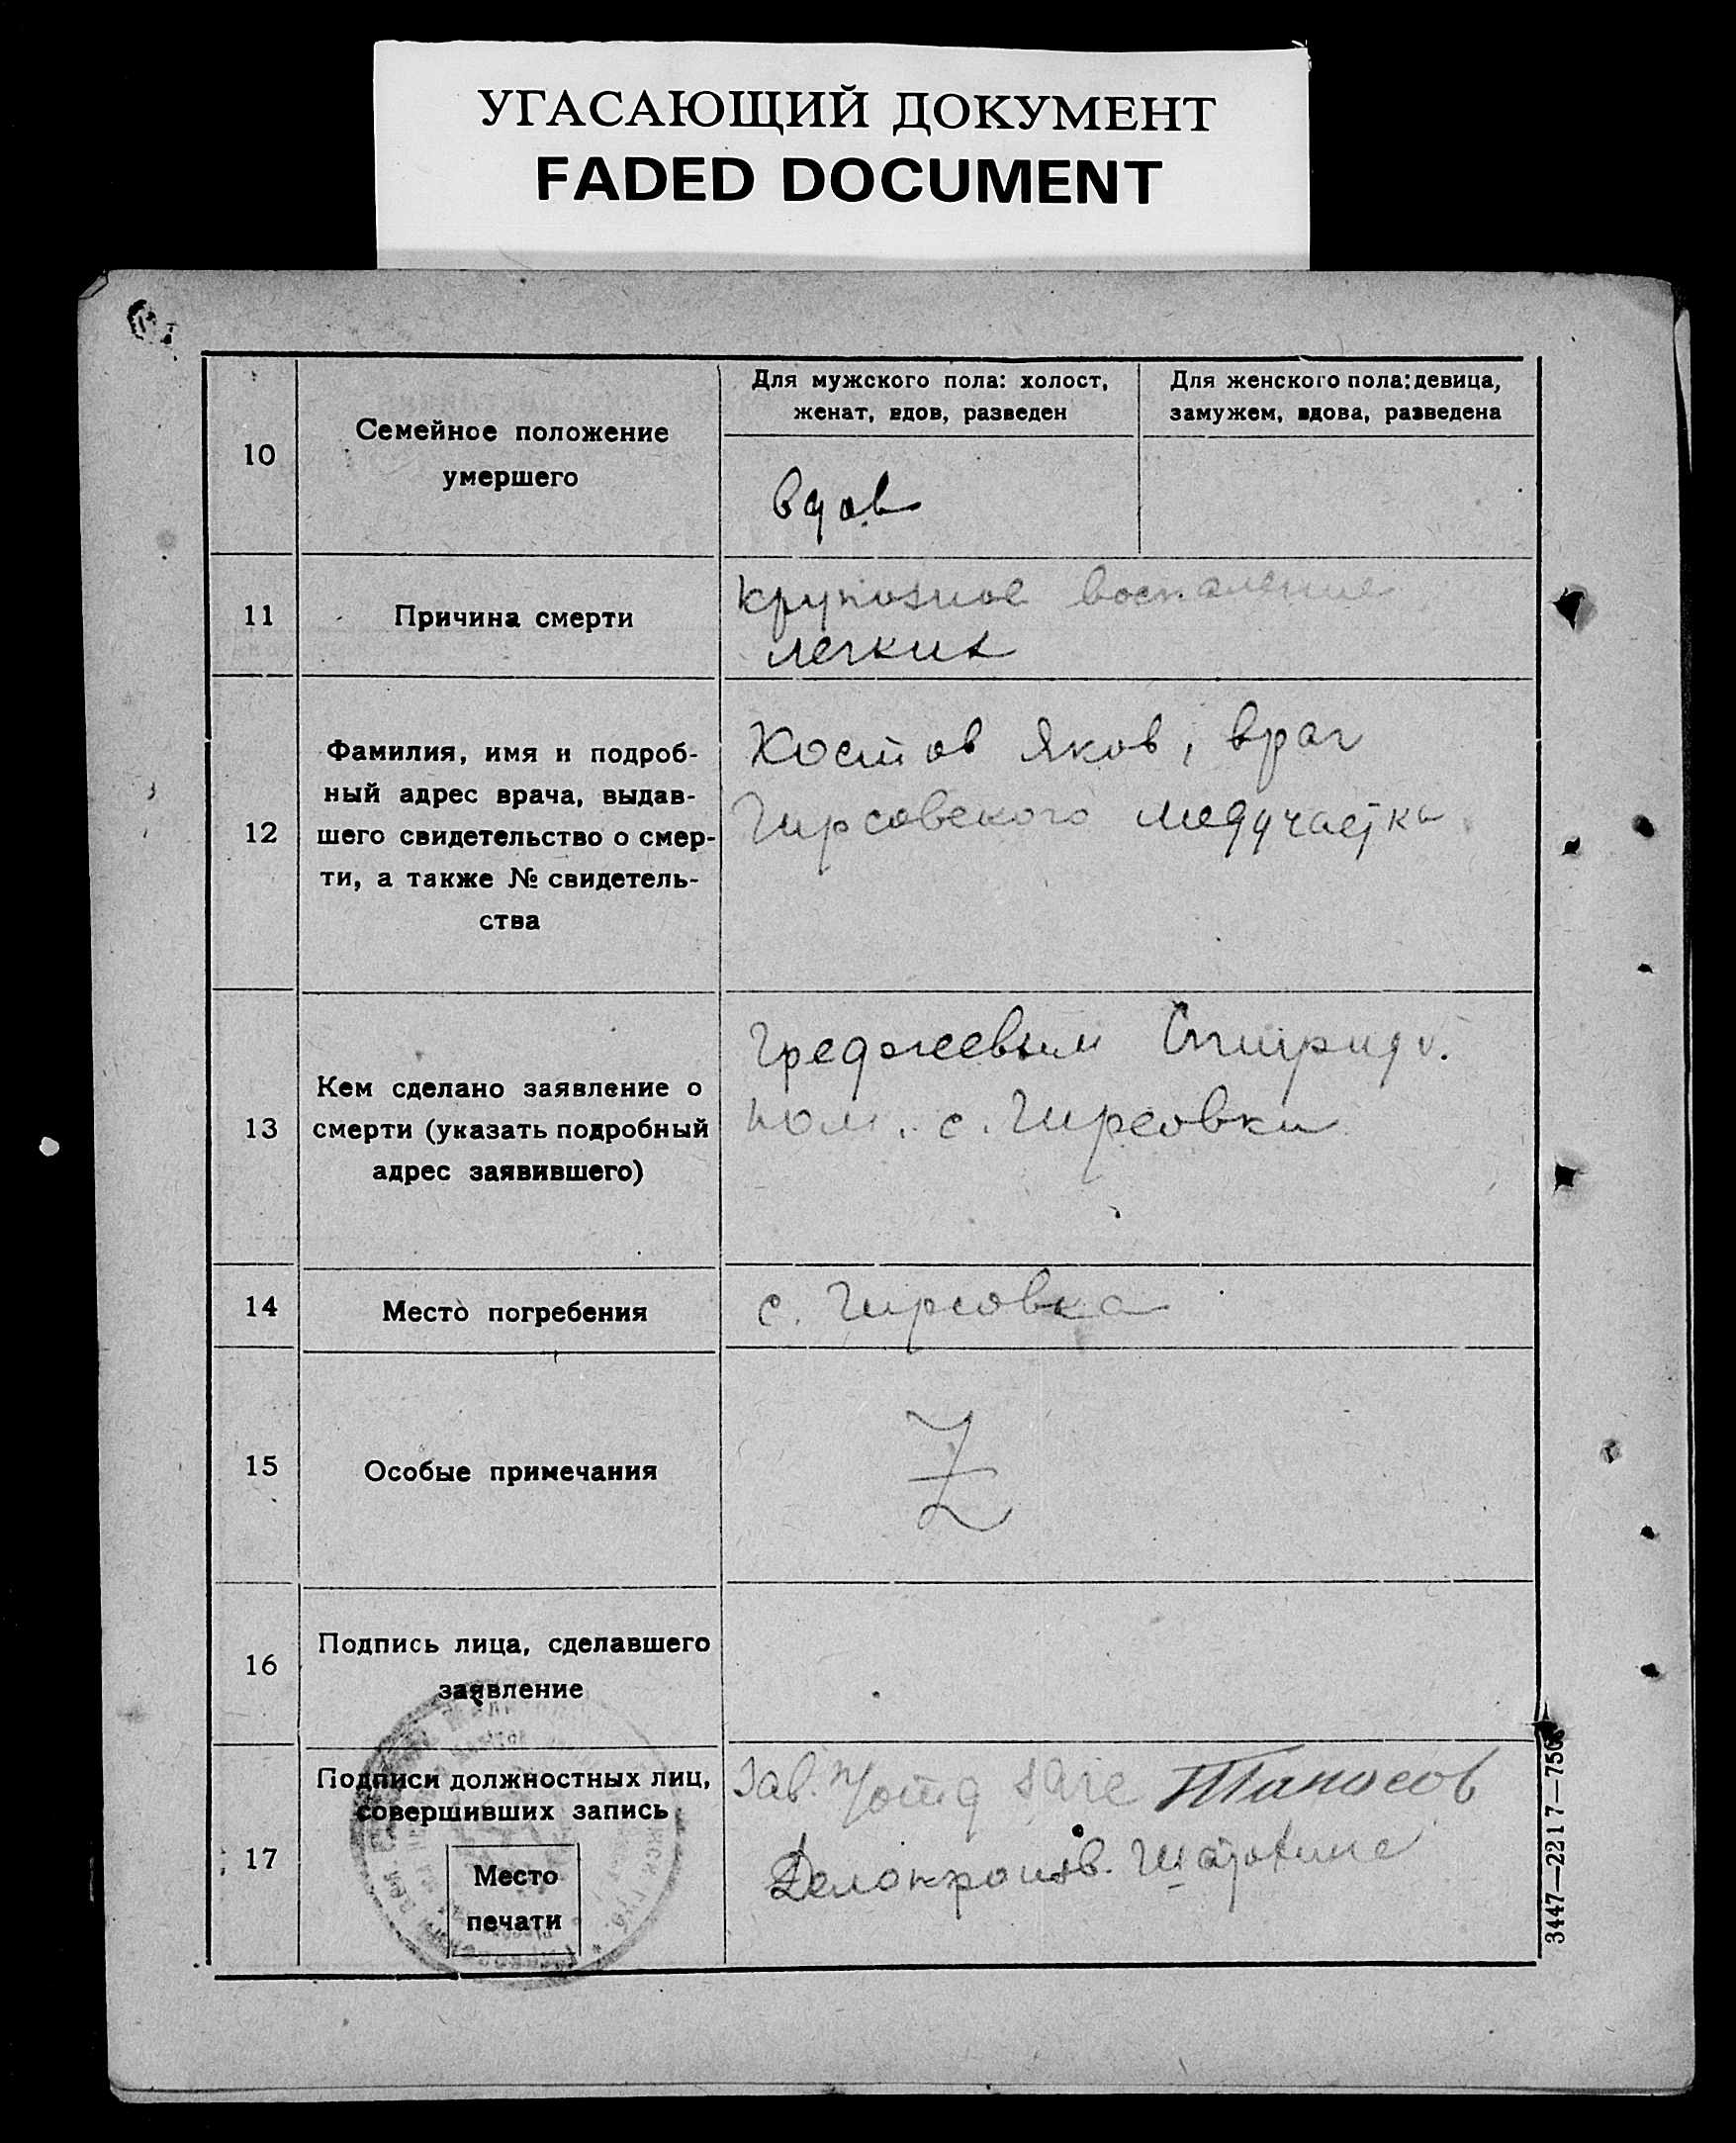 УГАСАЮЩИЙ ДОКУМЕНТ
FADED DOCUMENT
10
Семейное положение
умершего
Для мужского пола: холост,
женат, вдов, разведен
Для женского пола: девица,
замужем, вдова, разведена
вдов
11
Причина смерти
крупозное воспаление
легких
12
Фамилия, имя и подроб-
ный адрес врача, выдав-
шего свидетельство о смер-
ти, а также № свидетель-
ства
Костов Яков, врач
Гирсовского медучастка
13
Кем сделано заявление о
смерти (указать подробный
адрес заявившего)
Спиридо-
ном. с. Гирсовки
14
Место погребения
с. Гирсовка
15
Особые примечания
Z
16
Подпись лица, сделавшего
заявление
17
Подписи должностных лиц,
совершивших запись
Место
печати
Зав.
Делопроизв.
3447—2217—750